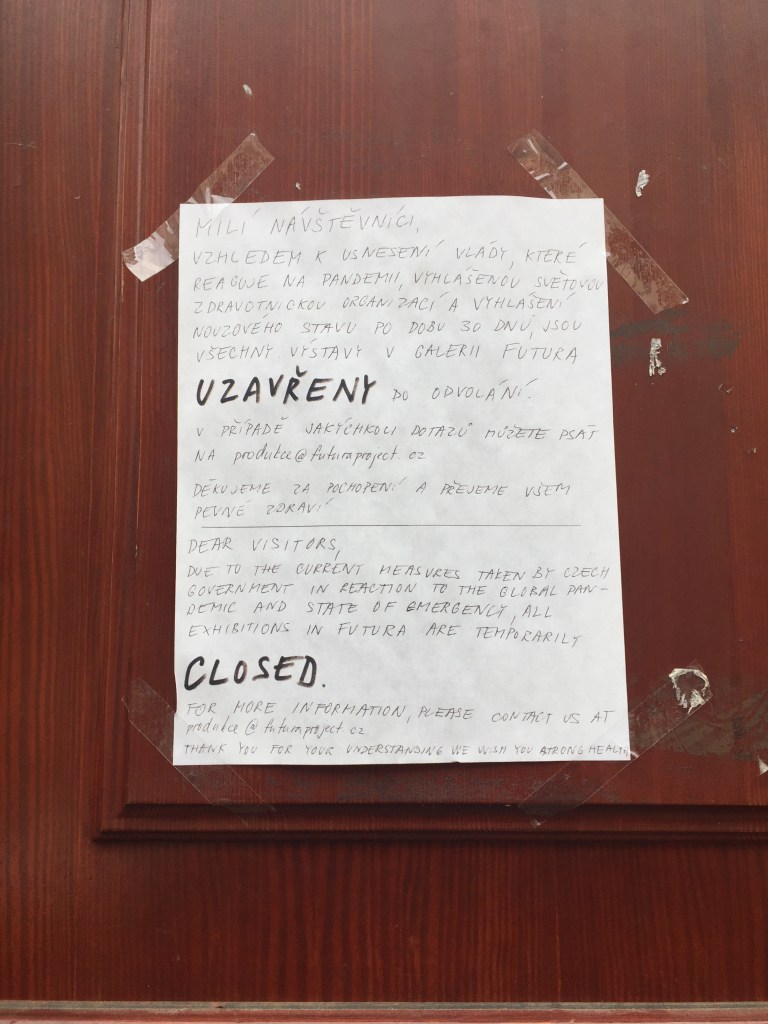 MILÍ NÁVŠTĚVNÍCI,
VZHLEDEM K USNESENÍ VLÁDY, KTERÉ
REAGUJE NA PANDEMII, VYHLÁŠENOU SVĚTOVOU
ZDRAVOTNICKOU ORGANIZACÍ A VYHLÁŠENÍ
NOUZOVÉHO STAVU PO DOBU 30 DNŮ, JSOU
VŠECHNY VÝSTAVY V GALERII FUTURA
UZAVŘENY DO ODVOLÁNÍ.
V PŘÍPADĚ JAKÝCHKOLI DOTAZŮ MŮŽETE PSÁT
NA produkce@futuraproject.cz
DĚKUJEME ZA POCHOPENÍ A PŘEJEME VŠEM
PEVNÉ ZDRAVÍ
DEAR VISITORS,
DUE TO THE CURRENT MEASURES TAKEN BY CZECH
GOVERNMENT IN REACTION TO THE GLOBAL PAN-
DEMIC AND STATE OF EMERGENCY, ALL
EXHIBITIONS IN FUTURA ARE TEMPORARILY
CLOSED.
FOR MORE INFORMATION, PLEASE CONTACT US AT
produkce@futuraproject.cz
THANK YOU FOR YOUR UNDERSTANDING WE WISH YOU STRONG HEALTH